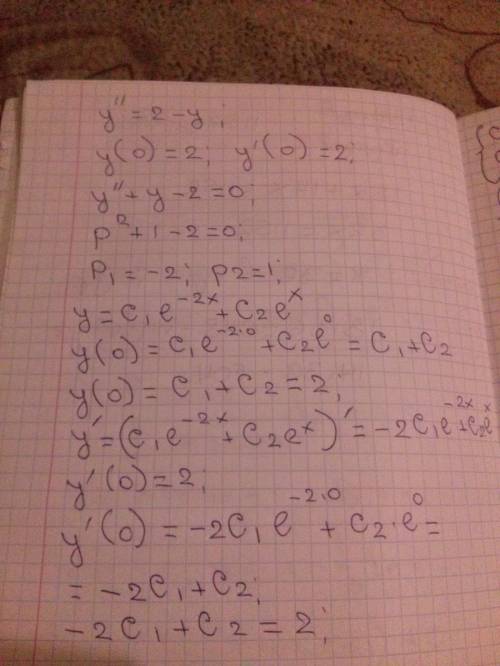 y'' = 2 - y;
y(0) = 2; y'(0) = 2;
y'' + y - 2 = 0;
p² + 1 - 2 = 0;
P₁ = -2; p2 = 1;
y = c₁e^-2x + C₂e^x
y(0) = c₁e^-2·0 + C₂e^0 = C₁ + C₂
y(0) = C₁ + C₂ = 2;
y' = (c₁e^-2x + C₂e^x)' = -2C₁e^-2x + C₂e^x
y'(0) = 2;
y'(0) = -2C₁e^-2·0 + C₂·e^0 =
= -2C₁ + C₂;
-2C₁ + C₂ = 2;